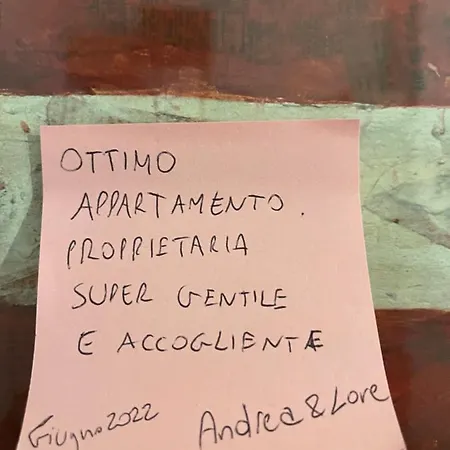 OTTIMO
APPARTAMENTO.
PROPRIETARIA
SUPER GENTILE
E ACCOGLIENTE
Giugno 2022 Andrea & Lore